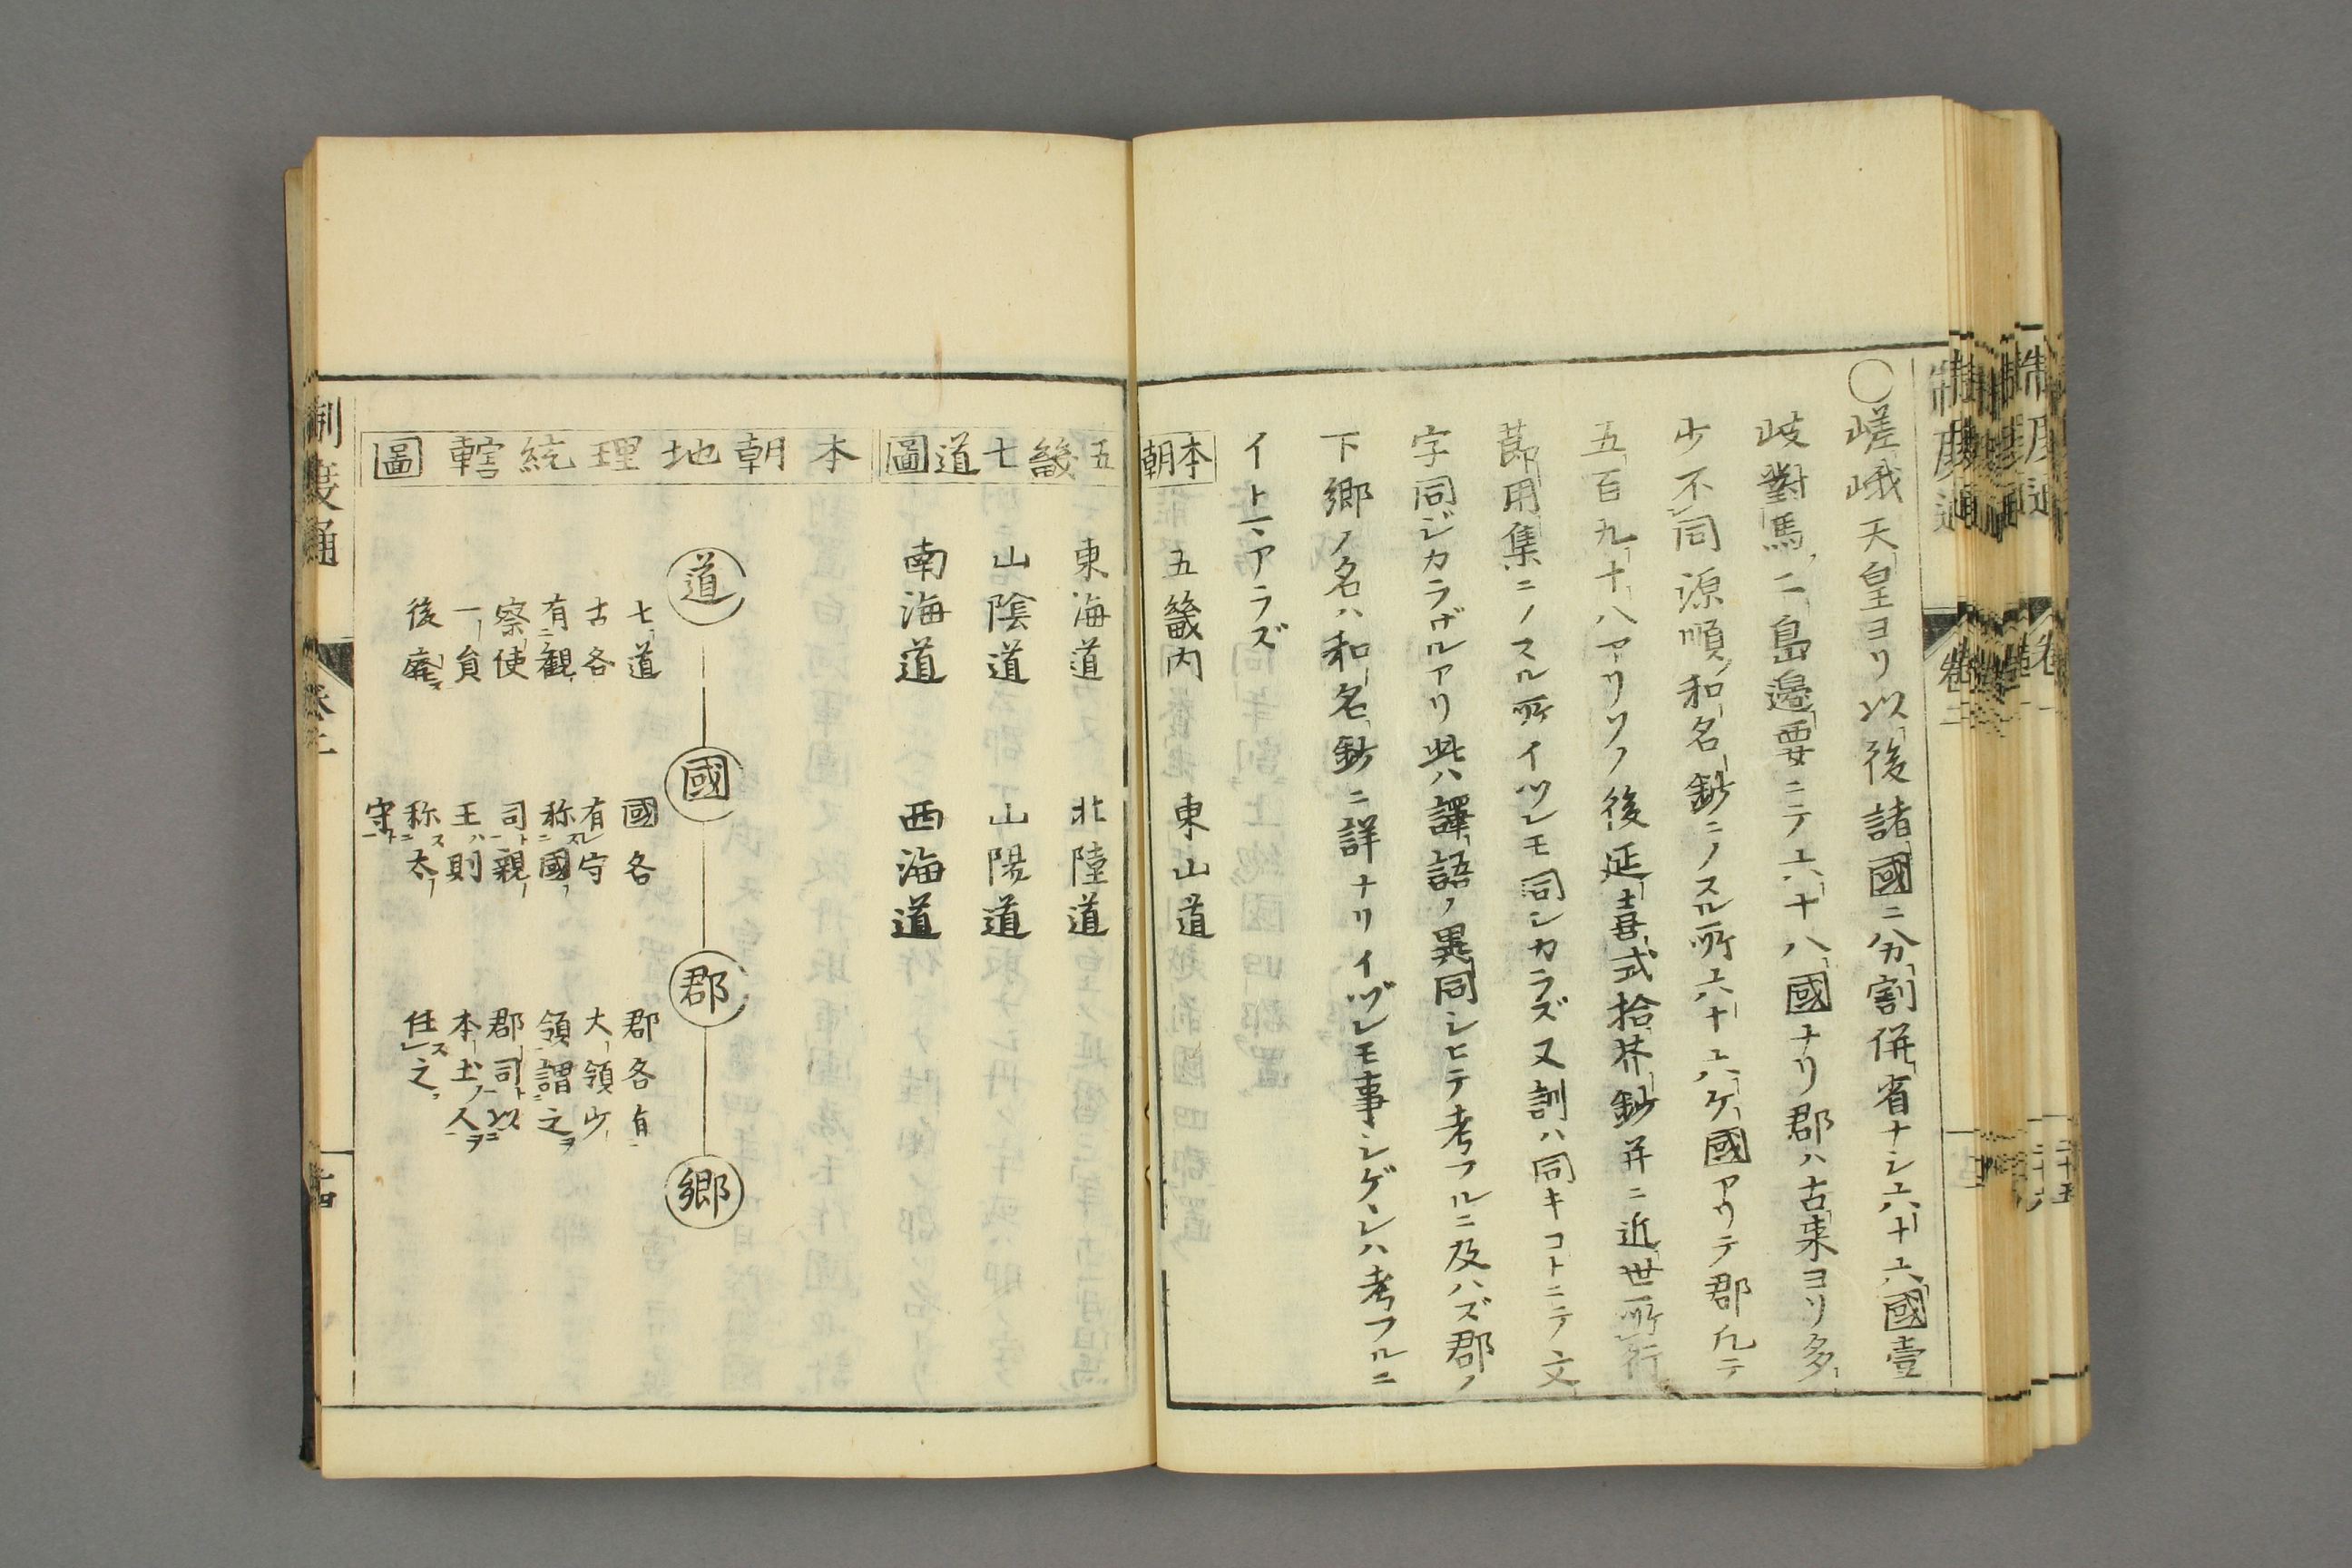 〇嵯峨天皇ヨリ以後諸國ニ分割併省ナシ六十六國壹
岐對馬二島邉要ニテ六十八國ナリ郡ハ古来ヨリ多
少不同源順和名鈔ニノスル所六十六ケ國アワテ郡凡テ
五百九十八アリソノ後延喜式拾芥鈔并ニ近世所行
莭用集ニノスル所イツレモ同シカラズ又訓ハ同キコトニテ文
字同ジカラザルアリ此ハ譯語ノ異同シヒテ考フルニ及ハズ郡ノ
下郷ノ名ハ和名鈔ニ詳ナリイヅレモ事シゲヽレハ考フルニ
イトマアラズ
本朝
五畿内 東山道
五畿七道圖
東海道 北陸道
山陰道 山陽道
南海道 西海道
本朝地理統轄圖
道 國 郡 郷
七道
古各
有觀
察使
一員
後廃ス
國各
有守
称國
司親
王ハ則
称ス太
守ト
郡各有
大領少
領謂之ヲ
郡司ト以
本土ノ人ヲ
任ス之ニ
制度通 巻二 十四